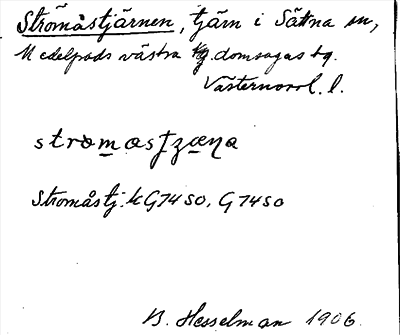 Strömåstjärnen, tjärn i Sättna sn,
Medelpads västra domsagas tg.
Västernorrl. l.
stròmasʃzæɳa
Stromåstj. k G74 SO, G74 SO
B. Hesselman 1906.